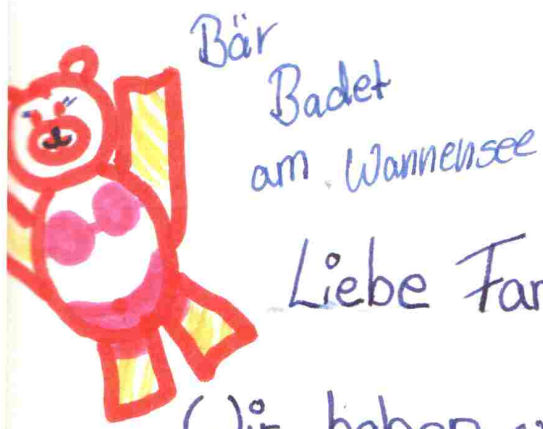 Bär
Badet
am Wannensee
Liebe
haben